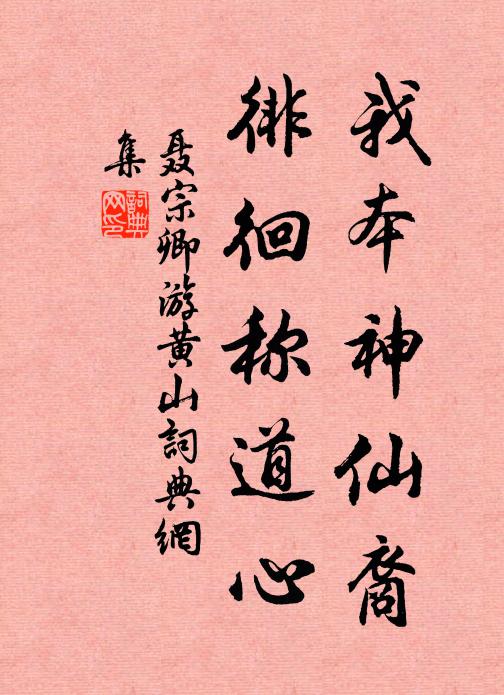 我本神仙裔
徘徊称道心
聂宗卿游黄山詞典網
集
詞典网印